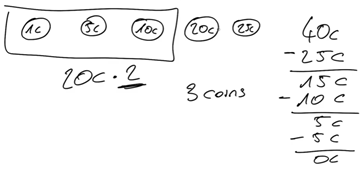 1c 5c 10c 20c 25c
20c · 2
3 coins
40c
- 25c
15c
- 10c
5c
- 5c
0c